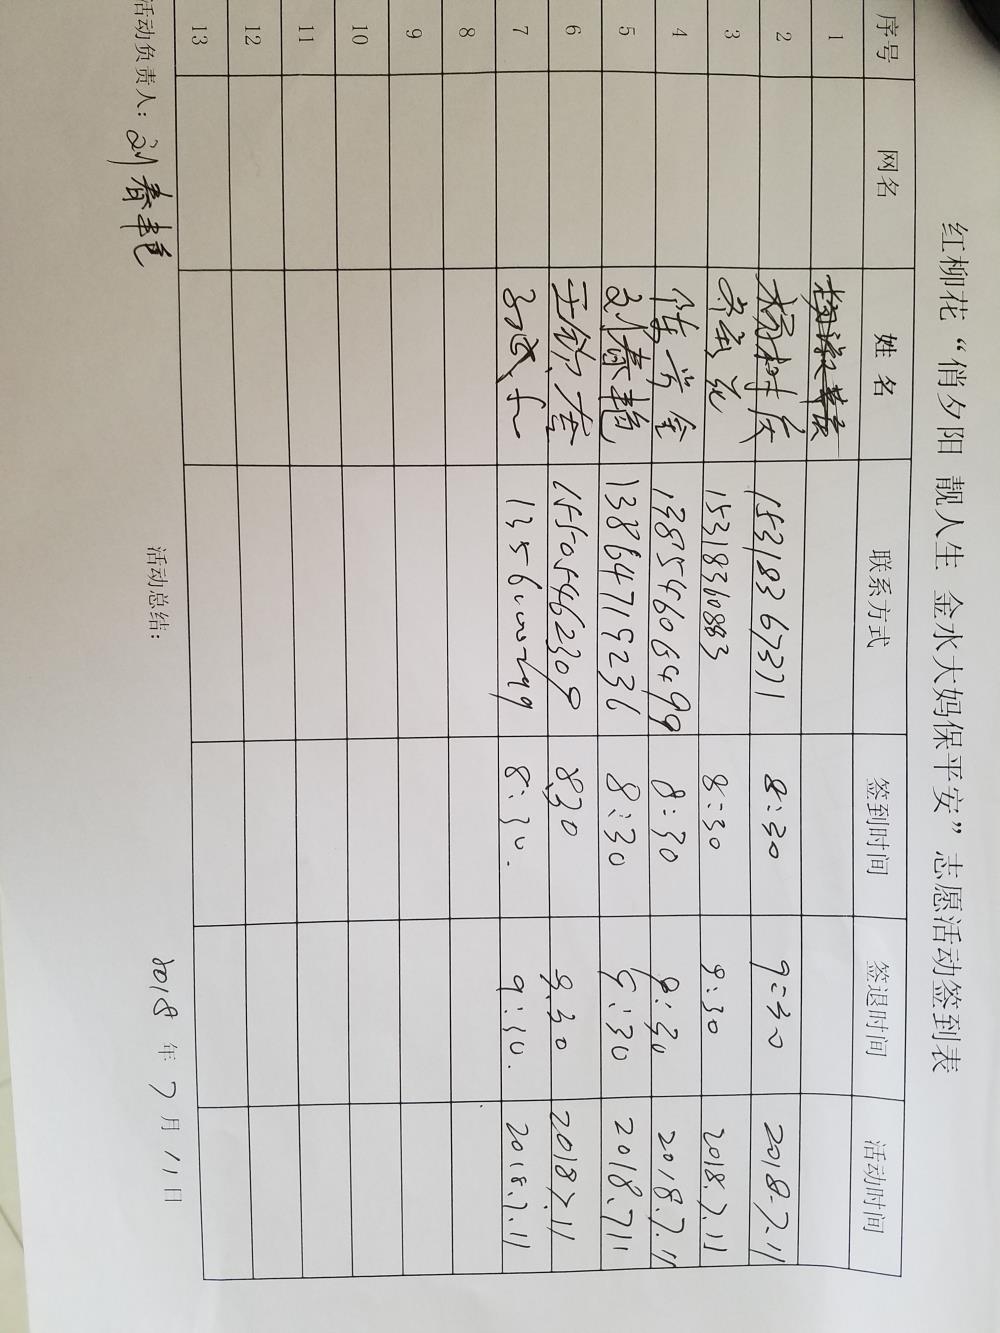 红柳花“俏夕阳 靓人生 金水大妈保平安”志愿活动签到表
序号 网名 姓名 联系方式 签到时间 签退时间 活动时间
1
2 杨树庆 15318367371 8:30 9:30 2018.7.11
3 15318360883 8:30 9:30 2018.7.11
4 陈兴金 13854606499 8:30 9:30 2018.7.11
5 刘春艳 13864719236 8:30 9:30 2018.7.11
6 15505462309 8:30 9:30 2018.7.11
7 8:30. 9:30. 2018.7.11
8
9
10
11
12
13
活动负责人：刘春艳 活动总结： 2018年7月11日